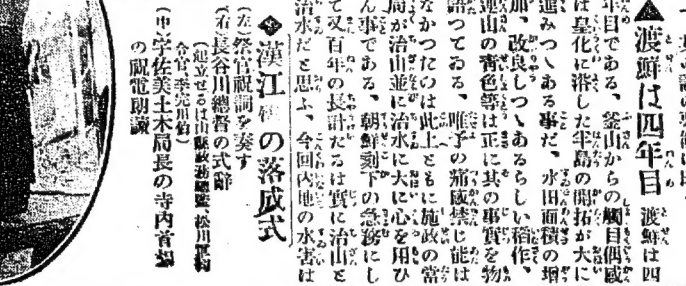 ▲渡鮮は四年目 渡鮮は四
年目である、釜山からの觸目偶感
は皇化に浴した半島の開拓が大に
進みつゝある事だ、水田面積の增
加、改良しつゝあるらしい稻作、
連山の靑色等は正に其の事實を物
語つてゐる、唯予の じ能は
なかつたのは此上ともに施政の當
局が治山並に治水に大に心を用ひ
ん事である、朝鮮刻下の急務にし
て又百年の長計たるは實に治山と
治水だと思ふ、今回内地の水害は
◆漢江橋の落成式
(左)祭官祝詞を奏す
(右)長谷川總督の式辭
(起立せるは山縣政務總監、松川軍司
令官、李完用伯)
(中)宇佐美土木局長の寺内首相
の祝電朗讀